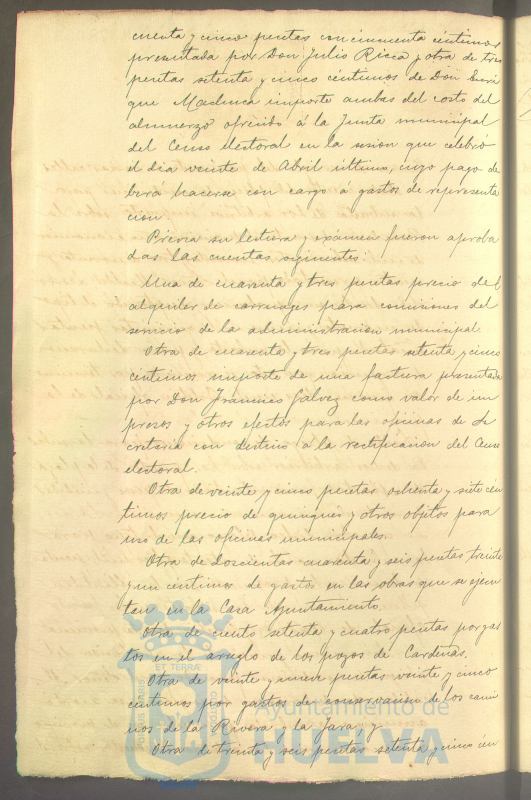 cuenta y cinco pesetas con cincuenta céntimos
presentada por Don Julio Ricca y otra de tres
pesetas setenta y cinco céntimos de Don
que importe ambas del costo del
almuerzo ofrecido á la Junta municipal
del Censo electoral en la sesion que celebró
el dia veinte de Abril último, cuyo pago de
berá hacerse con cargo á gastos de representa
cion.
Previa su lectura y exámen fueron aproba
das las cuentas siguientes:
Una de cuarenta y tres pesetas precio del
alquiler de carruages para comisiones del
servicio de la administracion municipal.
Otra de cuarenta y tres pesetas setenta y cinco
céntimos importe de una factura presentada
por Don Francisco Gálvez como valor de im
presos y otros efectos para las oficinas de Se
cretaria con destino á la rectificacion del Censo
electoral.
Otra de veinte y cinco pesetas ochenta y siete cén
timos precio de quinqués y otros objetos para
uso de las oficinas municipales.
Otra de doscientas cuarenta y seis pesetas treinta
y un centimos de gastos en las obras que se ejecu
tan en la Casa Ayuntamiento.
Otra de ciento setenta y cuatro pesetas por gas
tos en el arreglo de los pozos de Cardeñas.
Otra de veinte y nueve pesetas veinte y cinco
céntimos por gastos de conservacion de los cami
nos de la Rivera y la Jara y
Otra de treinta y seis pesetas setenta y cinco cén
ET TERRÆ
PORTUS MARIS
CUSTODIA
Ayuntamiento de
HUELVA